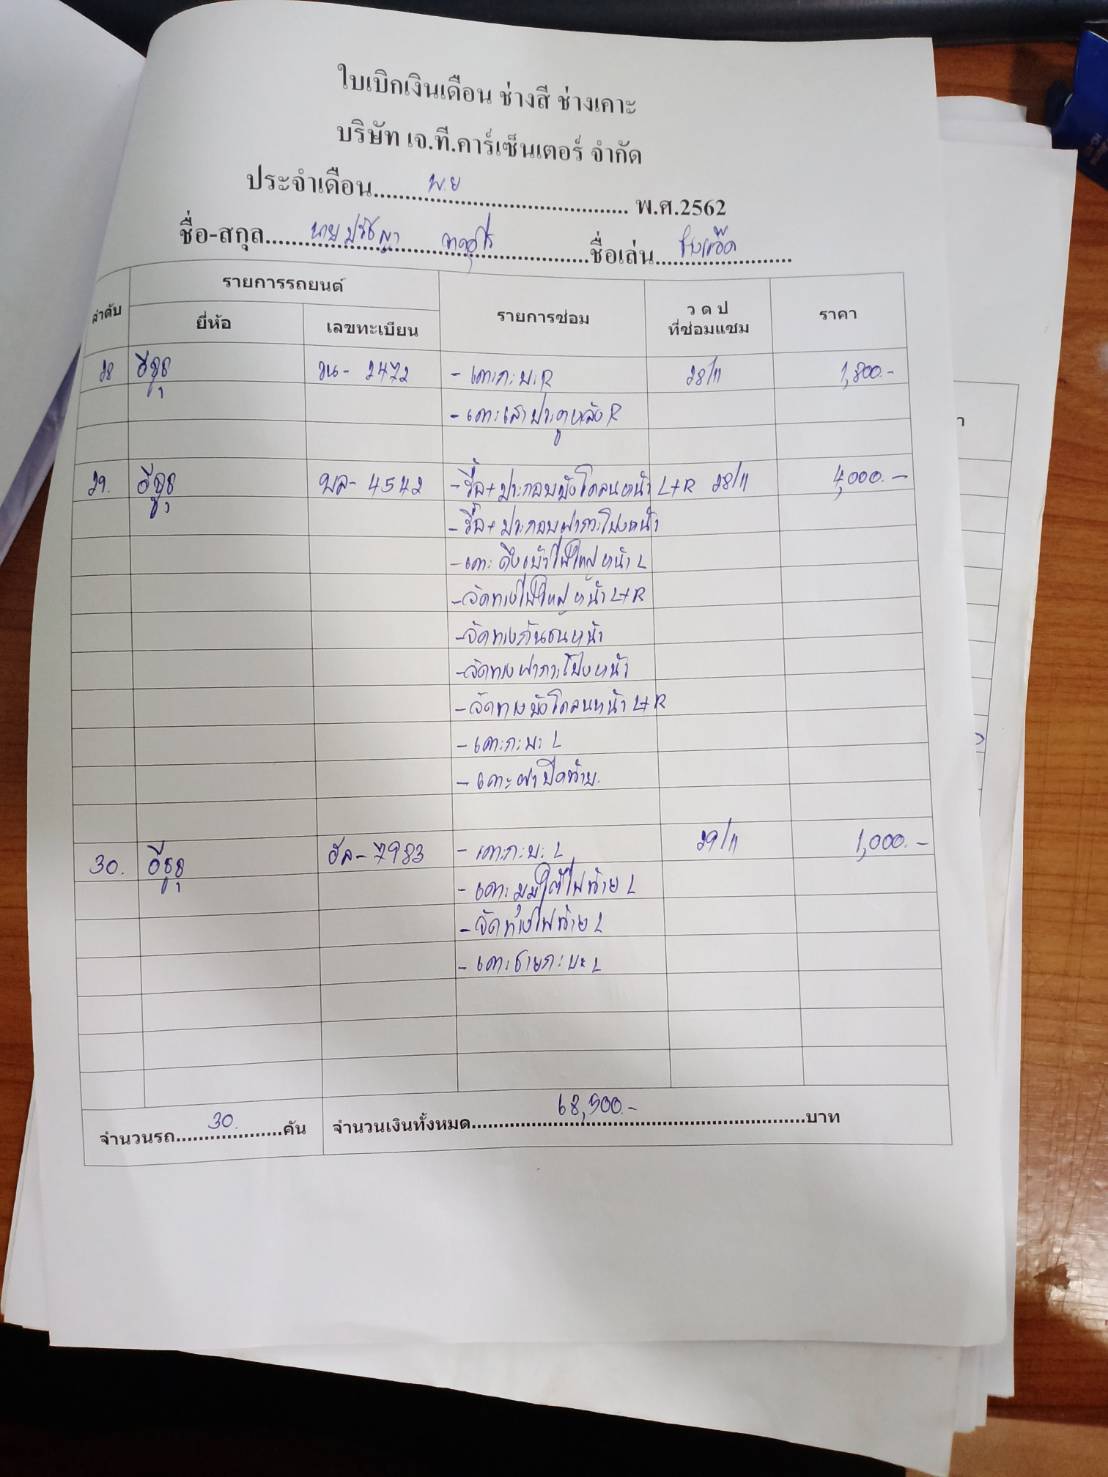 ใบเบิกเงินเดือน ช่างสี ช่างเคาะ
บริษัท เจ.ที.คาร์เซ็นเตอร์ จำกัด
ประจำเดือน พ.ย พ.ศ.2562
ชื่อ-สกุล นาย ปรัชญา ชื่อเล่น
ลำดับ รายการรถยนต์ รายการซ่อม ว ด ป ที่ซ่อมแซม ราคา
ยี่ห้อ เลขทะเบียน
28 อีซูซุ - 2472 - เคาะกะบะ R 28/11 1,800.-
- เคาะเสาประตูหลัง R
29. อีซูซุ - 4542 - รื้อ+ประกอบบังโคลนหน้า L+R 28/11 4,000.-
- รื้อ+ประกอบฝากระโปรงหน้า
- เคาะดึงเบ้าไฟใหญ่หน้า L
- จัดทางไฟใหญ่หน้า L+R
- จัดทางกันชนหน้า
- จัดทางฝากระโปรงหน้า
- จัดทางบังโคลนหน้า L+R
- เคาะกะบะ L
- เคาะฝาปิดท้าย.
30. อีซูซุ - 7983 - เคาะกะบะ L 29/11 1,000.-
- เคาะมุมใต้ไฟท้าย L
- จัดทางไฟท้าย L
- เคาะชายกะบะ L
จำนวนรถ 30. คัน จำนวนเงินทั้งหมด 68,500.- บาท